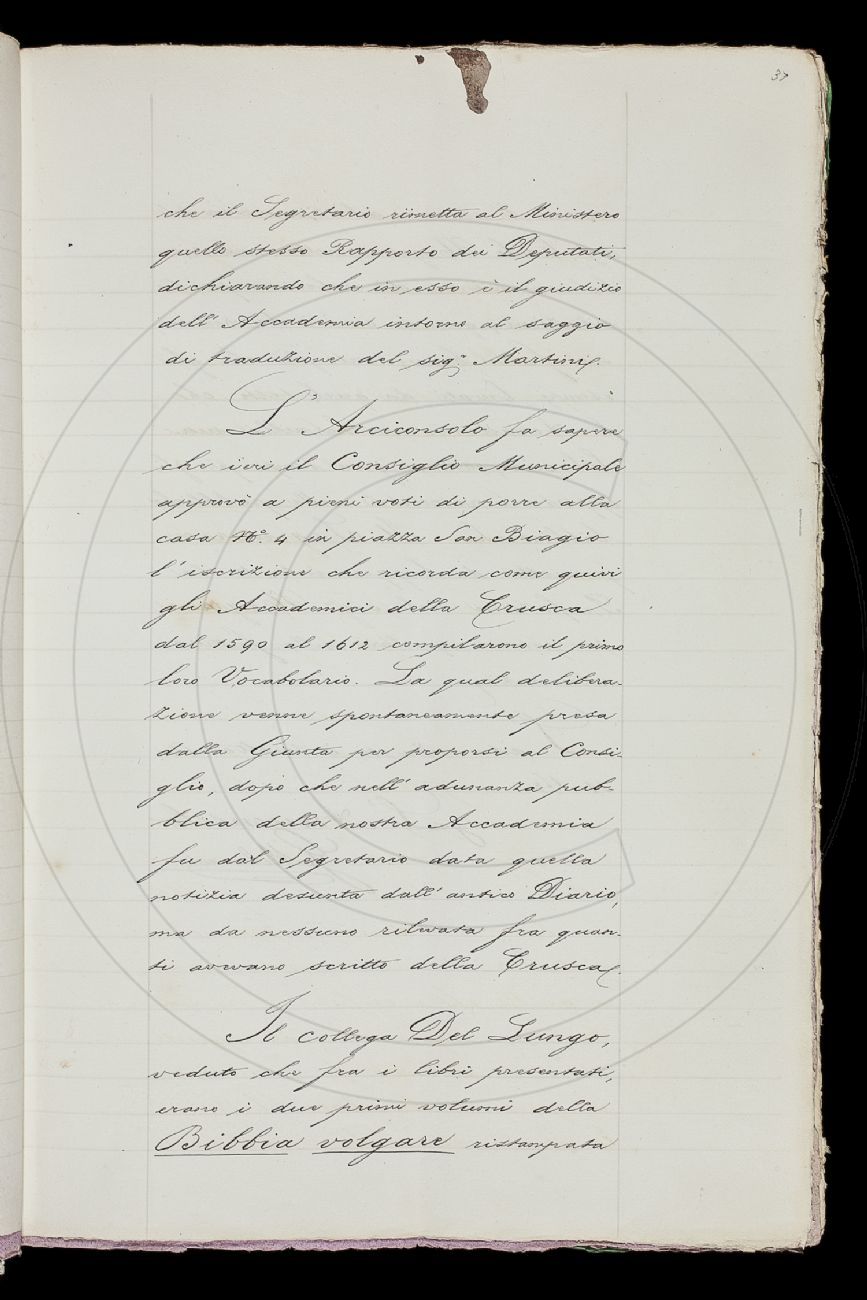 37
che il Segretario rimetta al Ministero
quello stesso Rapporto dei Deputati,
dichiarando che in esso è il giudizio
dell' Accademia intorno al saggio
di traduzione del sig.r Martini.
L' Arciconsolo fa sapere
che ieri il Consiglio Municipale
approvò a pieni voti di porre alla
casa N.o 4 in piazza San Biagio
l' iscrizione che ricorda come quivi
gli Accademici della Crusca
dal 1590 al 1612 compilarono il primo
loro Vocabolario. La qual delibera-
zione venne spontaneamente presa
dalla Giunta per proporsi al Consi-
glio, dopo che nell' adunanza pub-
blica della nostra Accademia
fu dal Segretario data quella
notizia desunta dall' antico Diario,
ma da nessuno rilevata fra quan-
ti avevano scritto della Crusca.
Il collega Del Lungo,
veduto che fra i libri presentati,
erano i due primi volumi della
Bibbia volgare ristampata